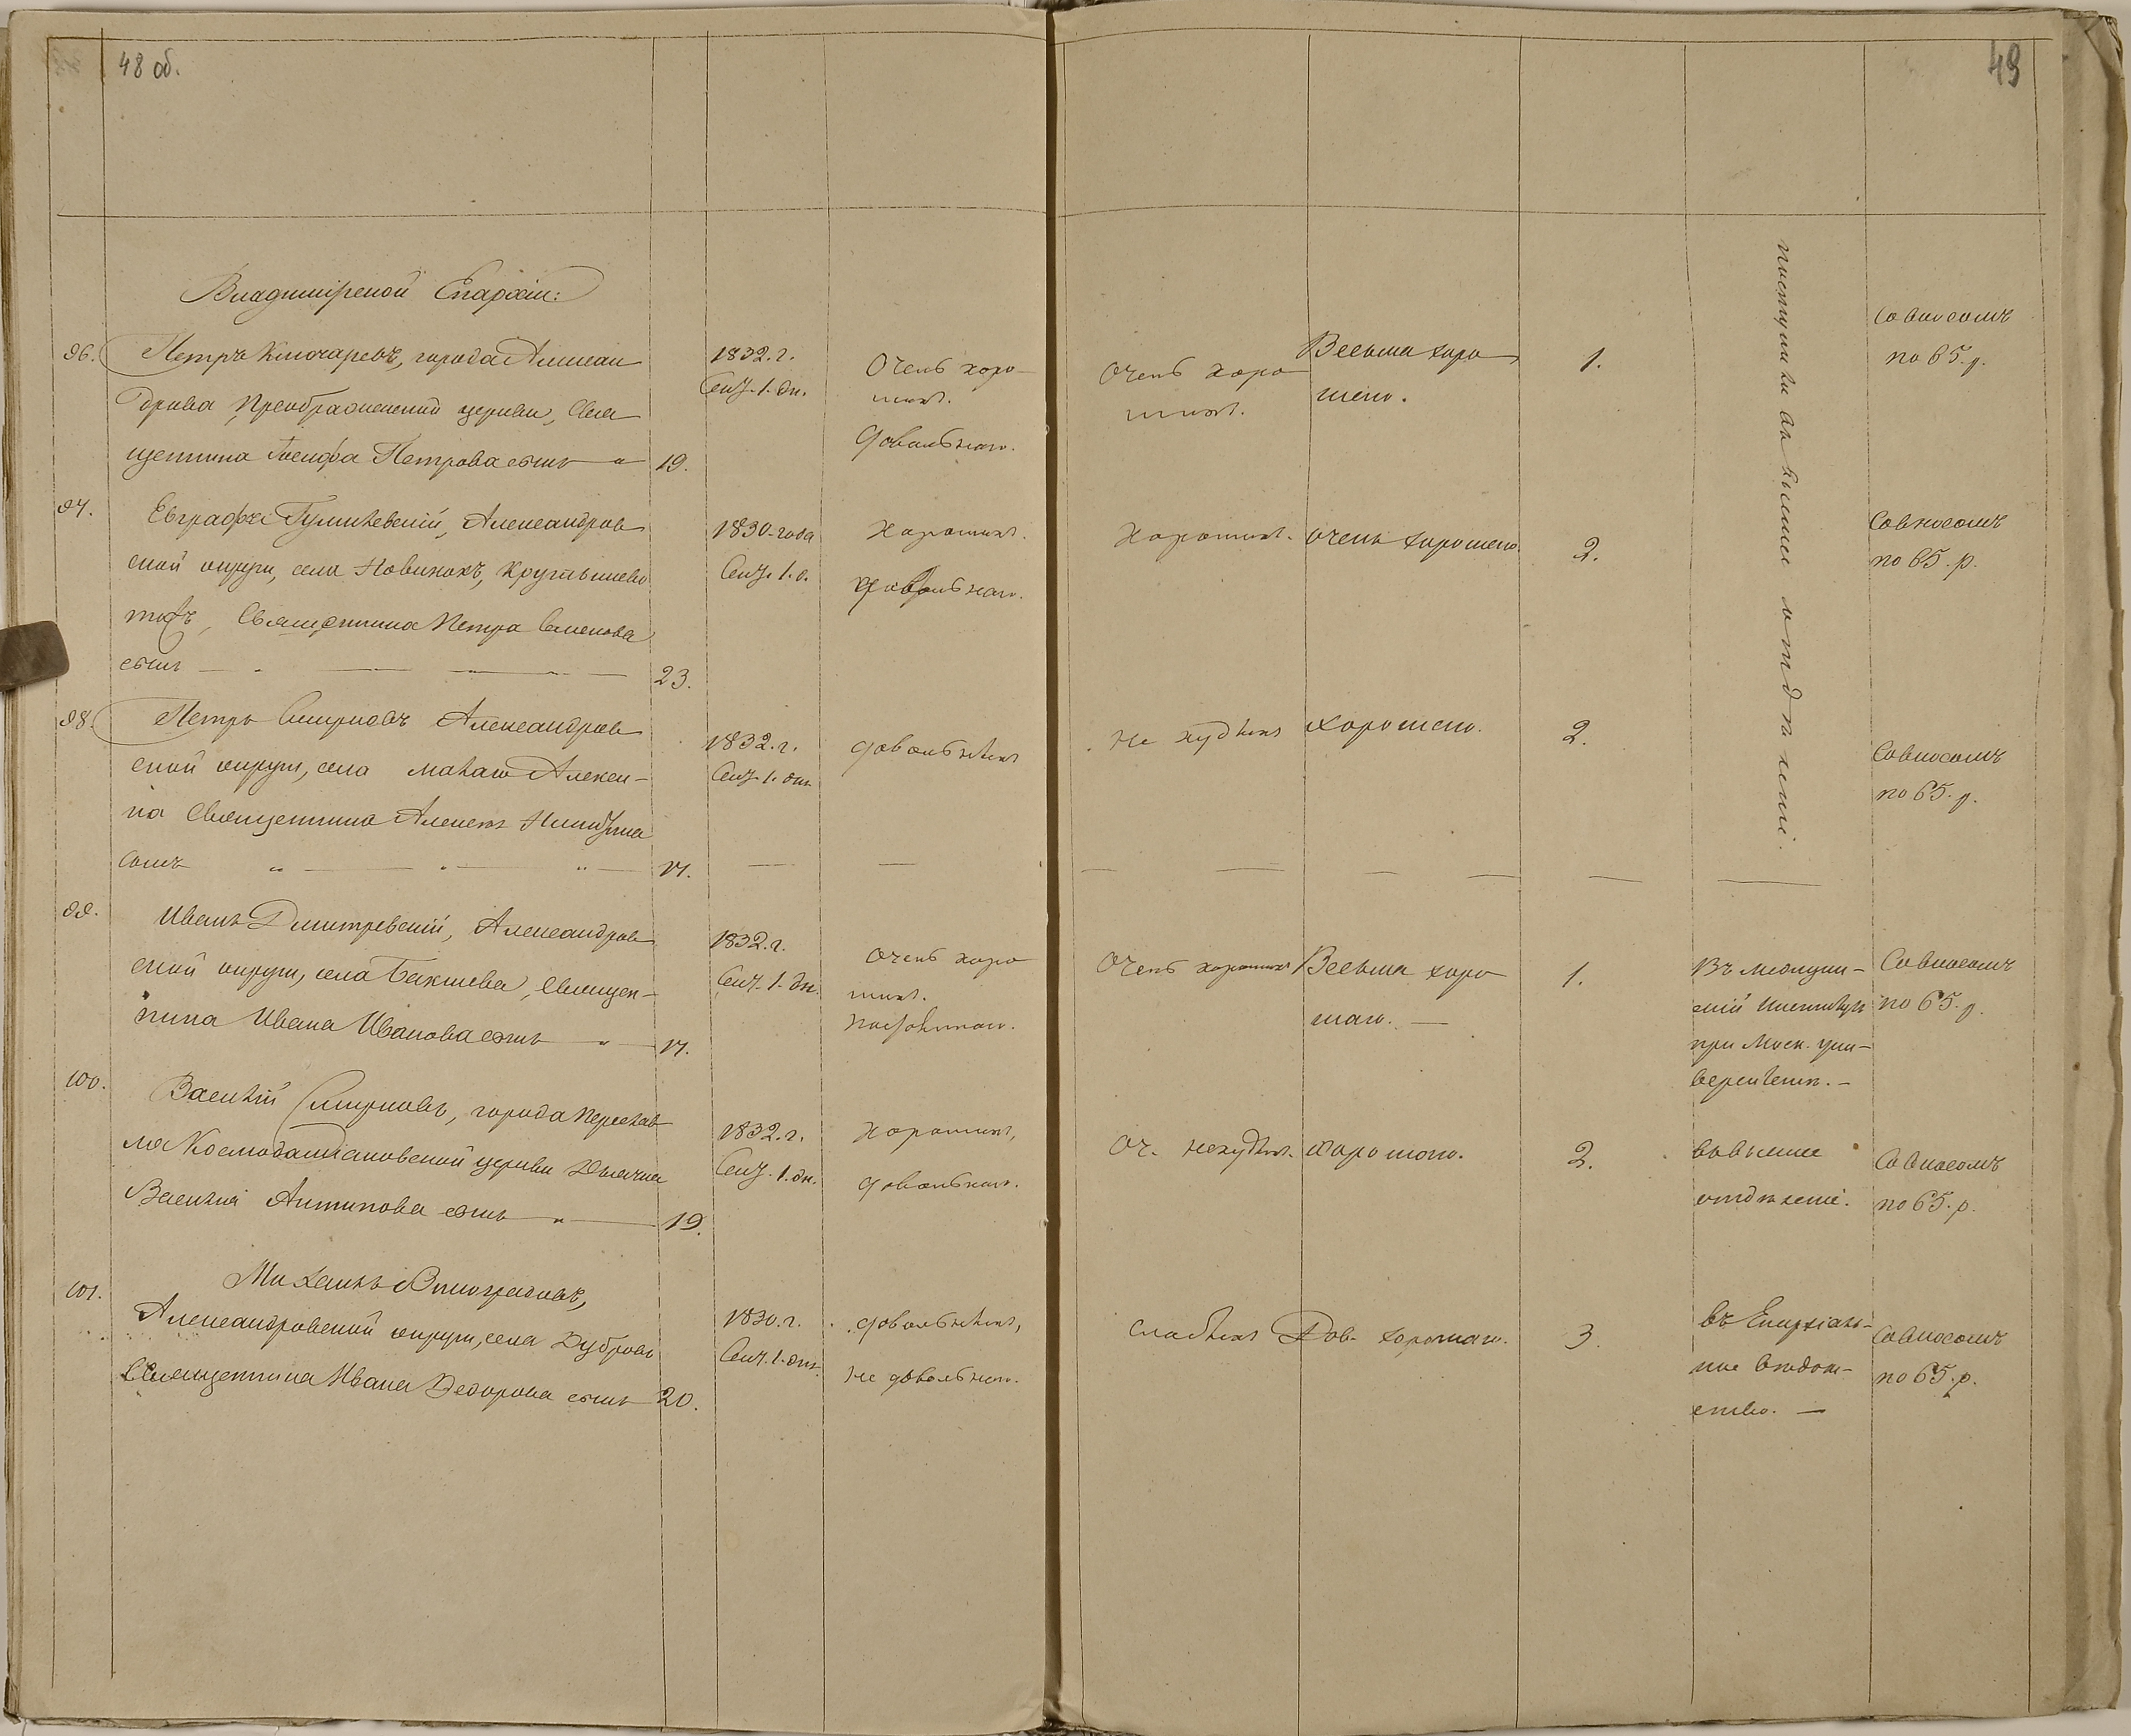 48 об.
49
Владимірской Епархіи:
96. Петръ Ключаревъ, города Алексан
дрова, Преображенской церкви, Свя
щенника Іосифа Петрова сынъ 19.
1832. г.
Сен. 1. дн.
Очень хоро-
шихъ.
довольнаго.
Очень хоро
шихъ.
Весьма хоро
шаго.
1.
поступили въ высшее отдѣленіе.
Со взносомъ
по 65. р.
97. Евграфъ Гумилевскій, Александров
ской округи, села Новинокъ, Крутышево
тожъ, Священника Петра Семенова
сынъ 23.
1830. года
Сен. 1. д.
Хорошихъ.
довольнаго.
Хорошихъ.
очень хорошаго.
2.
Со взносомъ
по 65. р.
98. Петръ Смирновъ Александров
ской округи, села малаго Алекси-
на Священника Алексѣя Никитина
сынъ 17.
1832. г.
Сен. 1. дня
довольныхъ
не худыхъ
хорошаго.
2.
Со взносомъ
по 65. р.
99. Иванъ Дмитревскій, Александров
ской округи, села Бакшева, Священ-
ника Ивана Иванова сынъ 17.
1832. г.
Сен. 1. дн.
Очень хоро
шихъ.
Очень хорошихъ
Весьма хоро
шаго. —
1.
Въ медицин-
скій Институтъ
при Моск. уни-
верситетѣ. —
Со взносомъ
по 65. р.
100. Василій Смирновъ, города Переслав
ля Космодаміановской церкви Дьячка
Василія Антипова сынъ 19.
1832. г.
Сен. 1. дн.
Хорошихъ,
довольнаго.
Оч. нехудыхъ.
Хорошаго.
2.
въ высшее
отдѣленіе.
Со взносомъ
по 65. р.
101. Михаилъ Виноградовъ,
Александровской округи, села Дубровъ
Священника Ивана Ѳедорова сынъ 20.
1830. г.
Сен. 1. дня
довольныхъ,
не довольнаго.
слабыхъ
Дов. хорошаго.
3.
въ Епархіаль-
ное вѣдом-
ство. —
Со взносомъ
по 65. р.